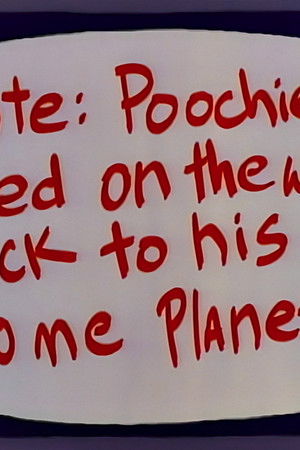 te: Poochie
ed on the w
ck to his
ome Plane